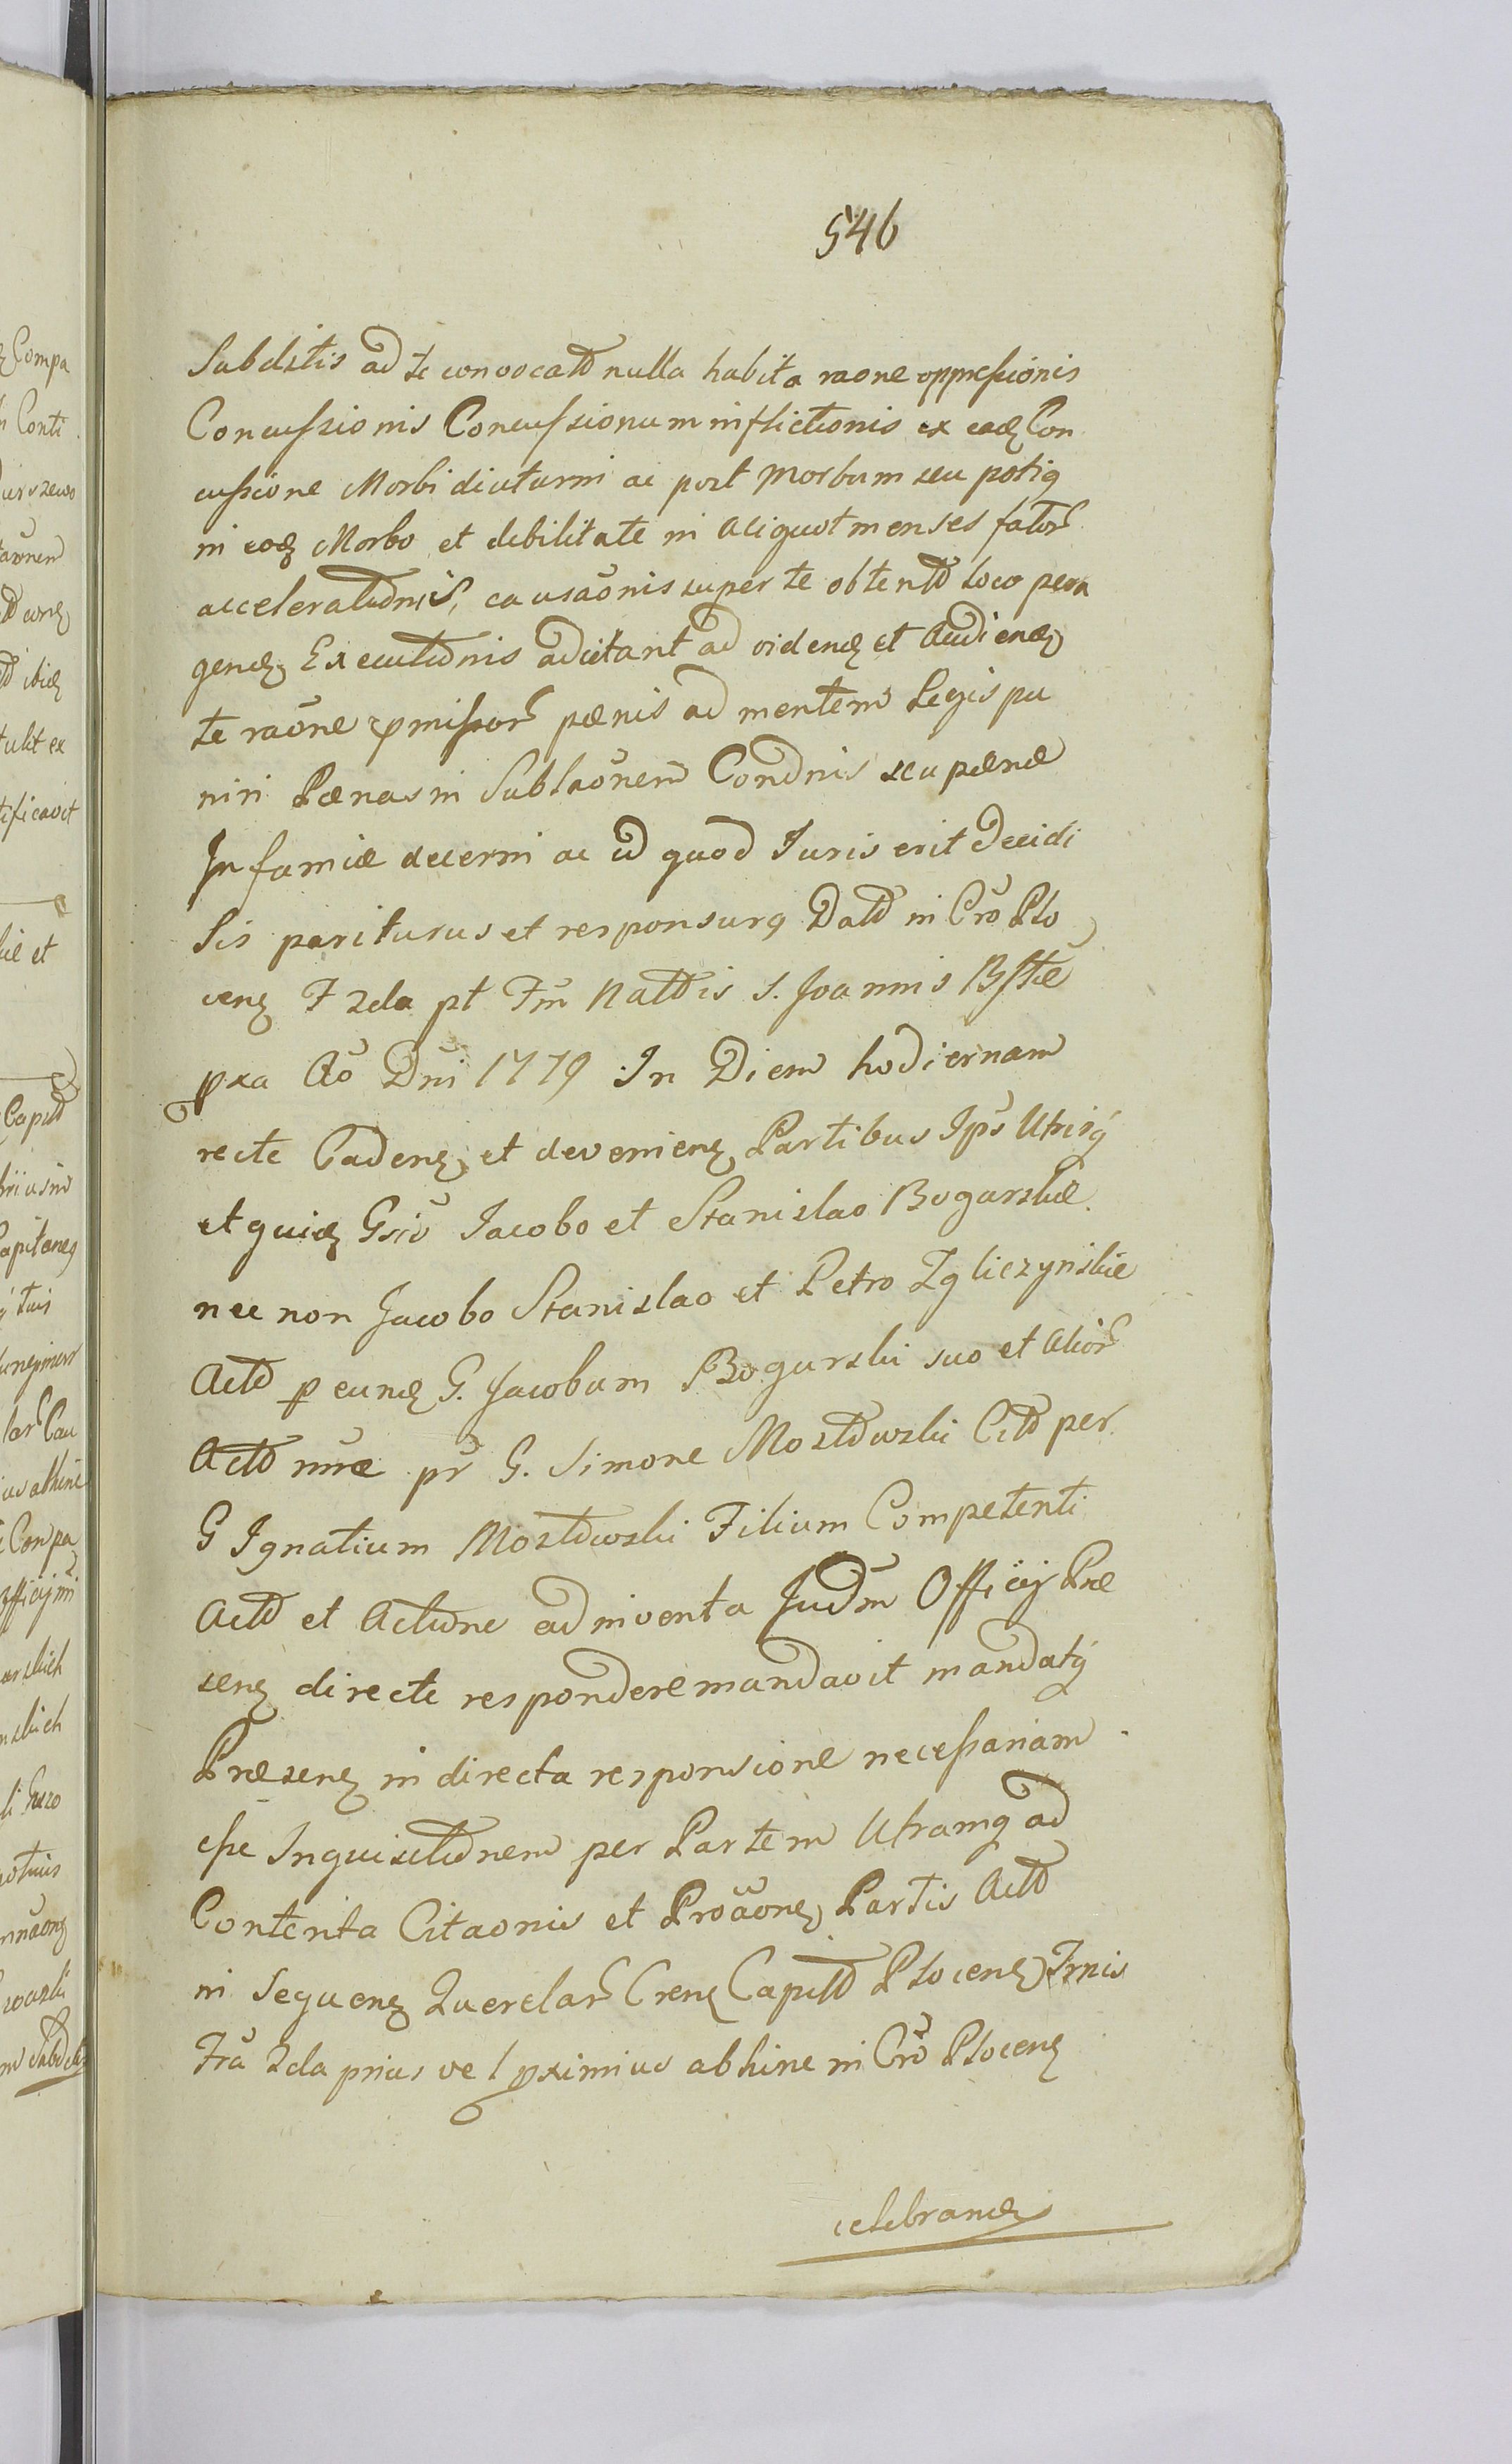 546
Subditis ad te convocatd nulla habita raone oppressionis
Concussionis Concussionum inflictionis ex eadꝫ Con
cussione Morbi diuturni ac post Morbum seu potiꝯ
in eodꝫ Morbo et debilitate in aliquot menses fator
accelerationis, causaõnis super te obtentd loco pera
gendꝫ Executionis adcitant ad videndꝫ et Audiendꝫ
te raõne pmissor pœnis ad mentem Legis pu
niri Pœnas in Sublaõnem Condnis seu pœnæ
Infamiæ decerni ac id quod Iuris erit Decidi
Sis pariturus et responsurꝯ Datd in Crõ Plo
cenꝫ F 2da pt Fm̃ Nattis S. Joannis Bptæ
pxa Aõ Dñi 1779 In Diem hodiernam
recte Cadenꝫ et devenienꝫ Partibus Ips̃ Utrisqꝫ
et quidꝫ Gsis̃ Jacobo et Stanislao Bogurskie
nec non Jacobo Stanislao et Petro Zgliczynskie
Actd p eundꝫ G. Jacobum Bogurski suo et alior
Actd nñe pr̃ G. Simone Mostowski Citd per
G Ignatium Mostowski Filium Competenti
Actd et Actione adinventa Judm̃ Officij Præ
senꝫ directe respondere mandavit mandatqꝫ
Præsenꝫ in directa responsione necessariam
esse Inquisitionem per Partem Utramqꝫ ad
Contenta Citaonis et Prõaõnꝫ Partis Actd
in Sequenꝫ Querelar Crenꝫ Capitd Plocenꝫ Trnis
Frã 2da prius vel pximius abhinc in Crõ Plocenꝫ
celebrandꝫ